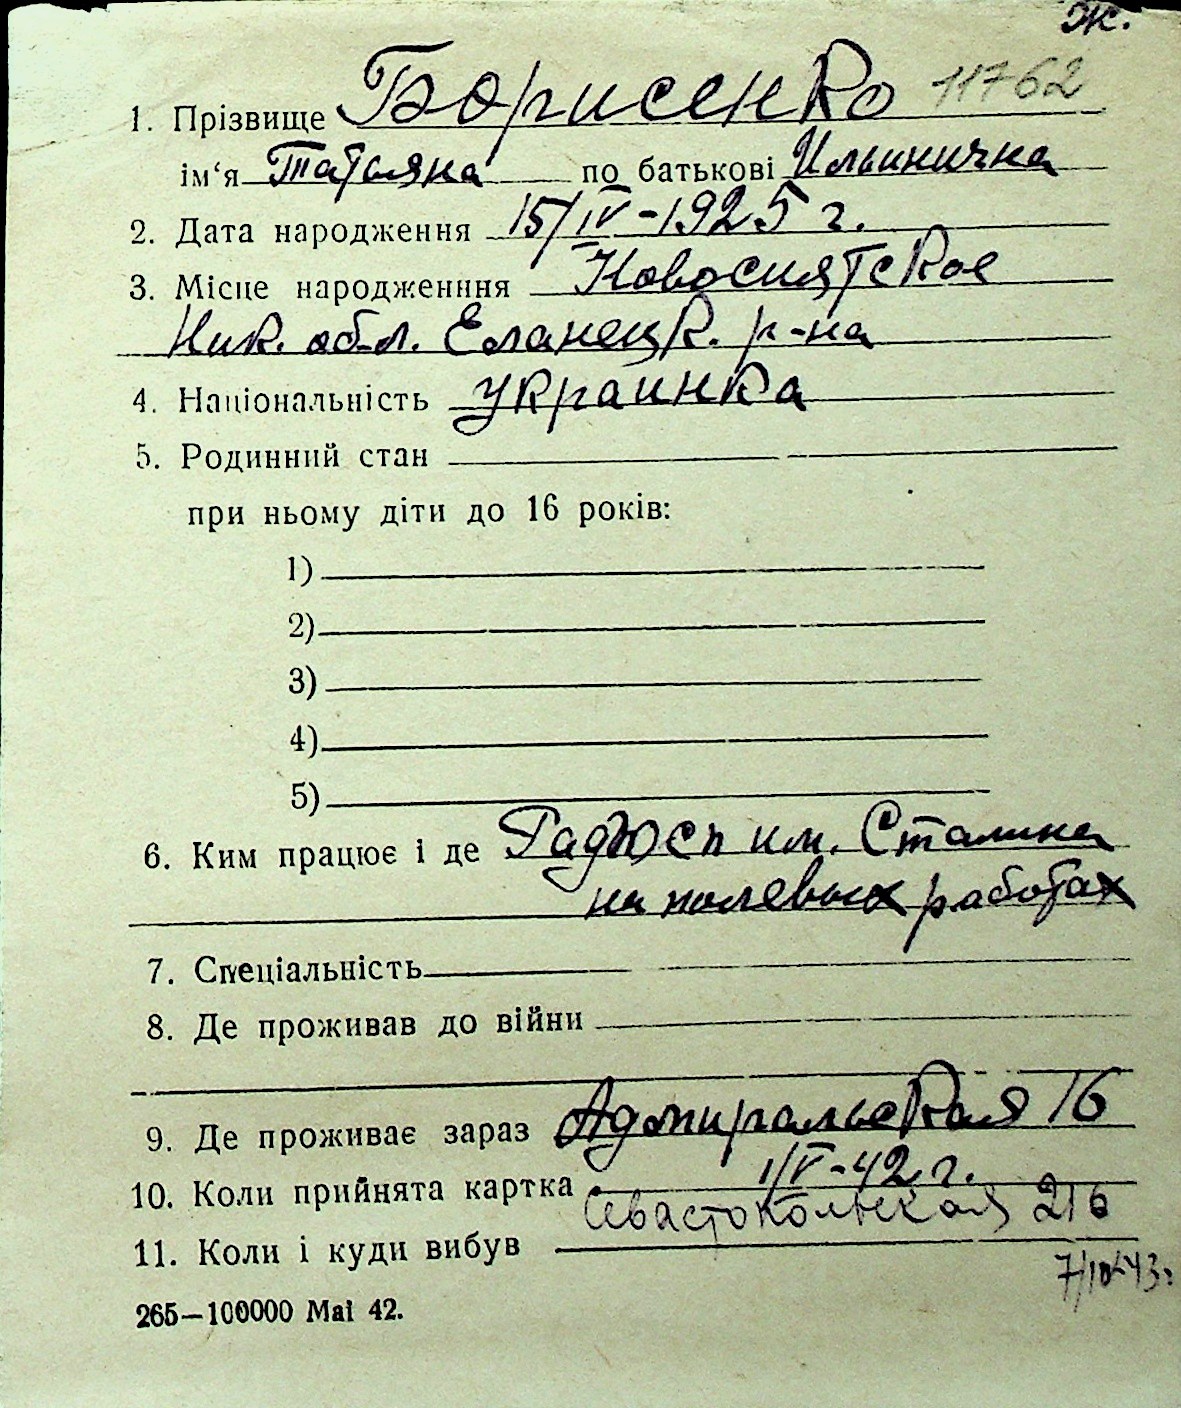 Ж.
1. Прізвище Борисенко 11762
ім‘я Татьяна по батькові Ильинична
2. Дата народження 15/IV-1925 г.
3. Місце народженння Новосиятское
Ник. обл. Еланецк. р-на
4. Національність украинка
5. Родинний стан
при ньому діти до 16 років:
1)
2)
3)
4)
5)
6. Ким працює і де Гадхосп им. Сталина
на полевых работах
7. Спеціальність
8. Де проживав до війни
9. Де проживає зараз Адмиральская 16
10. Коли прийнята картка 1/V-42 г.
Севастопольская 216
11. Коли і куди вибув
7/10-43г
265—100000 Mai 42.